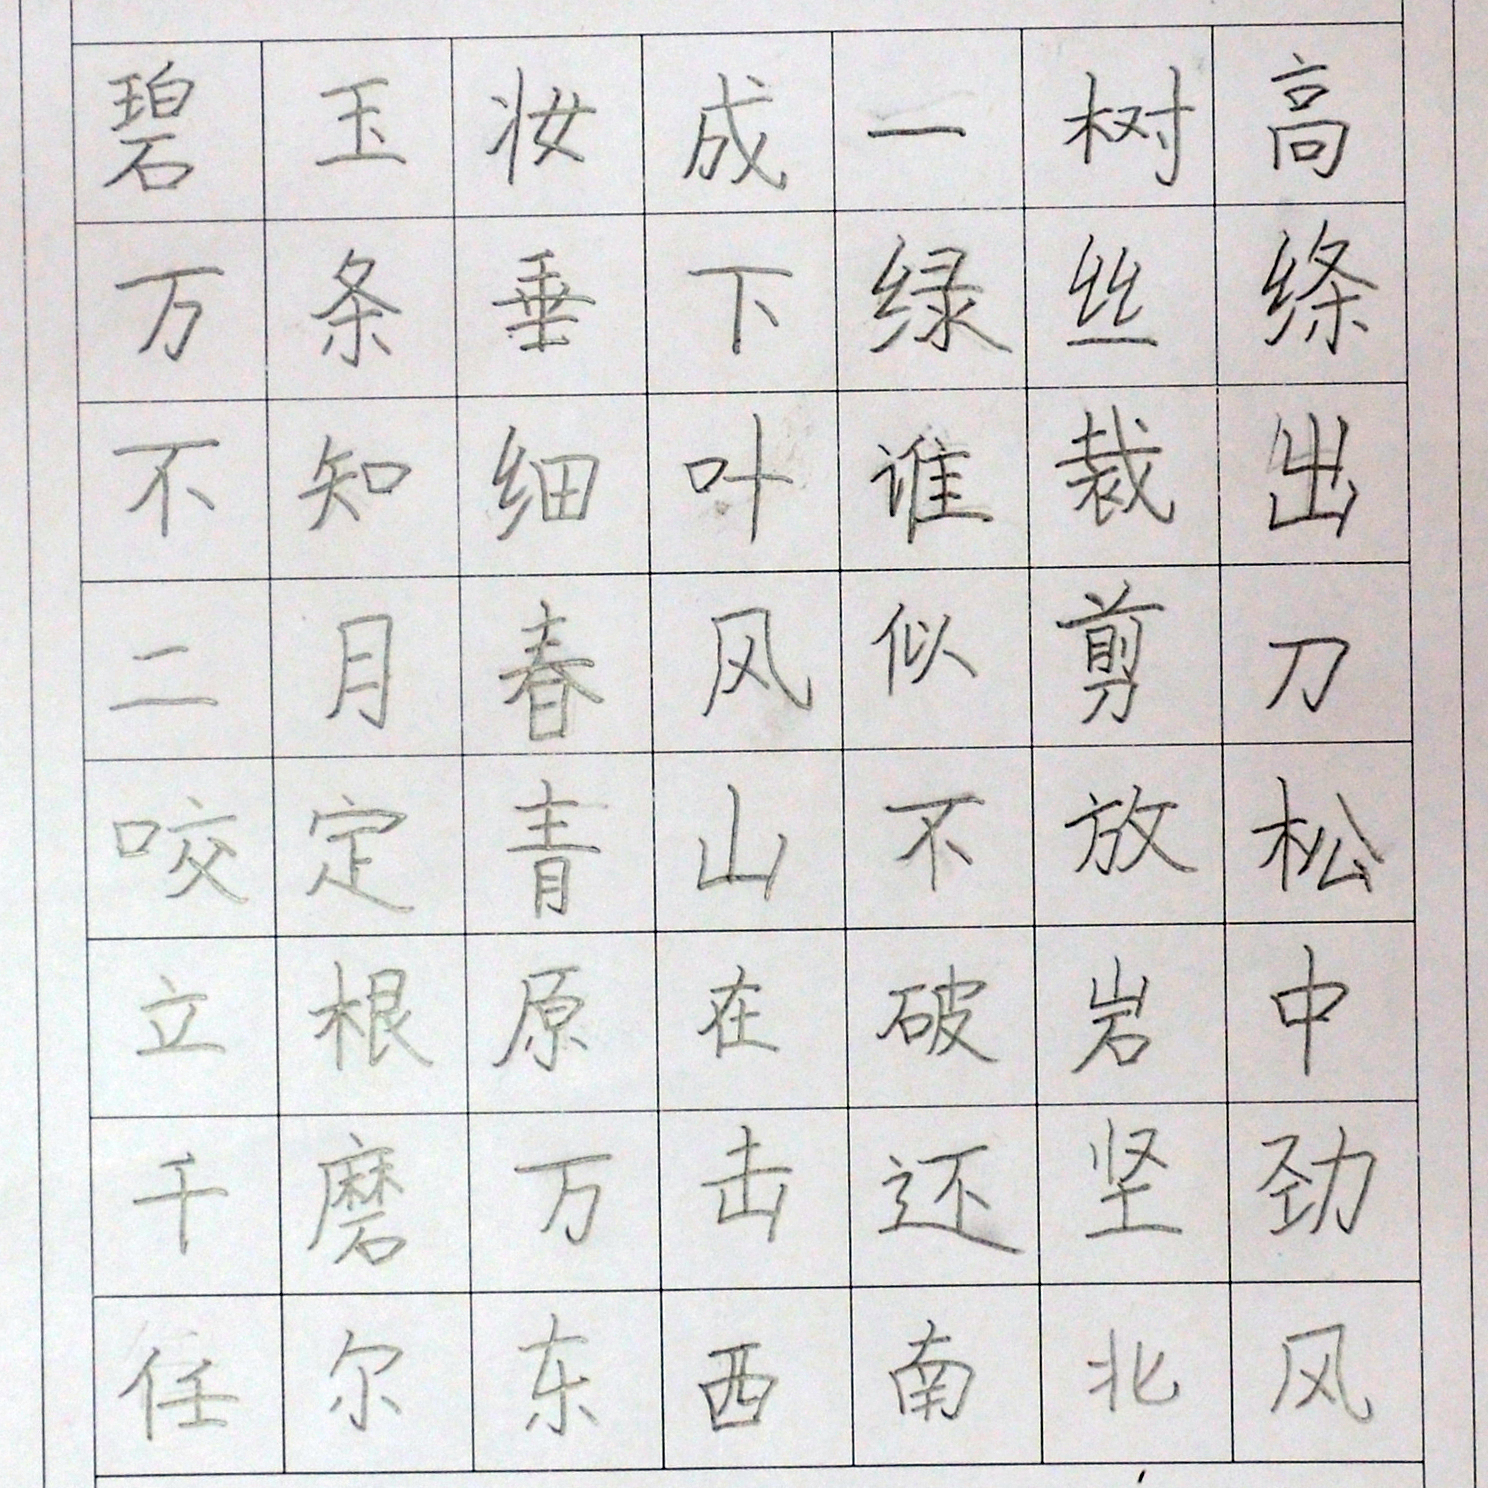 碧玉妆成一树高
万条垂下绿丝绦
不知细叶谁裁出
二月春风似剪刀
咬定青山不放松
立根原在破岩中
千磨万击还坚劲
任尔东西南北风